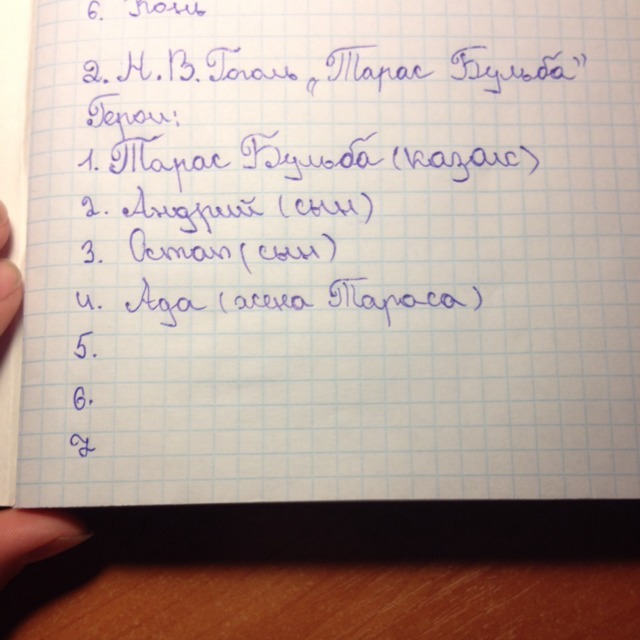 6. Конь
2. Н. В. Гоголь „Тарас Бульба”
Герои:
1. Тарас Бульба (казак)
2. Андрий (сын)
3. Остап (сын)
4. Ада (жена Тараса)
5.
6.
7